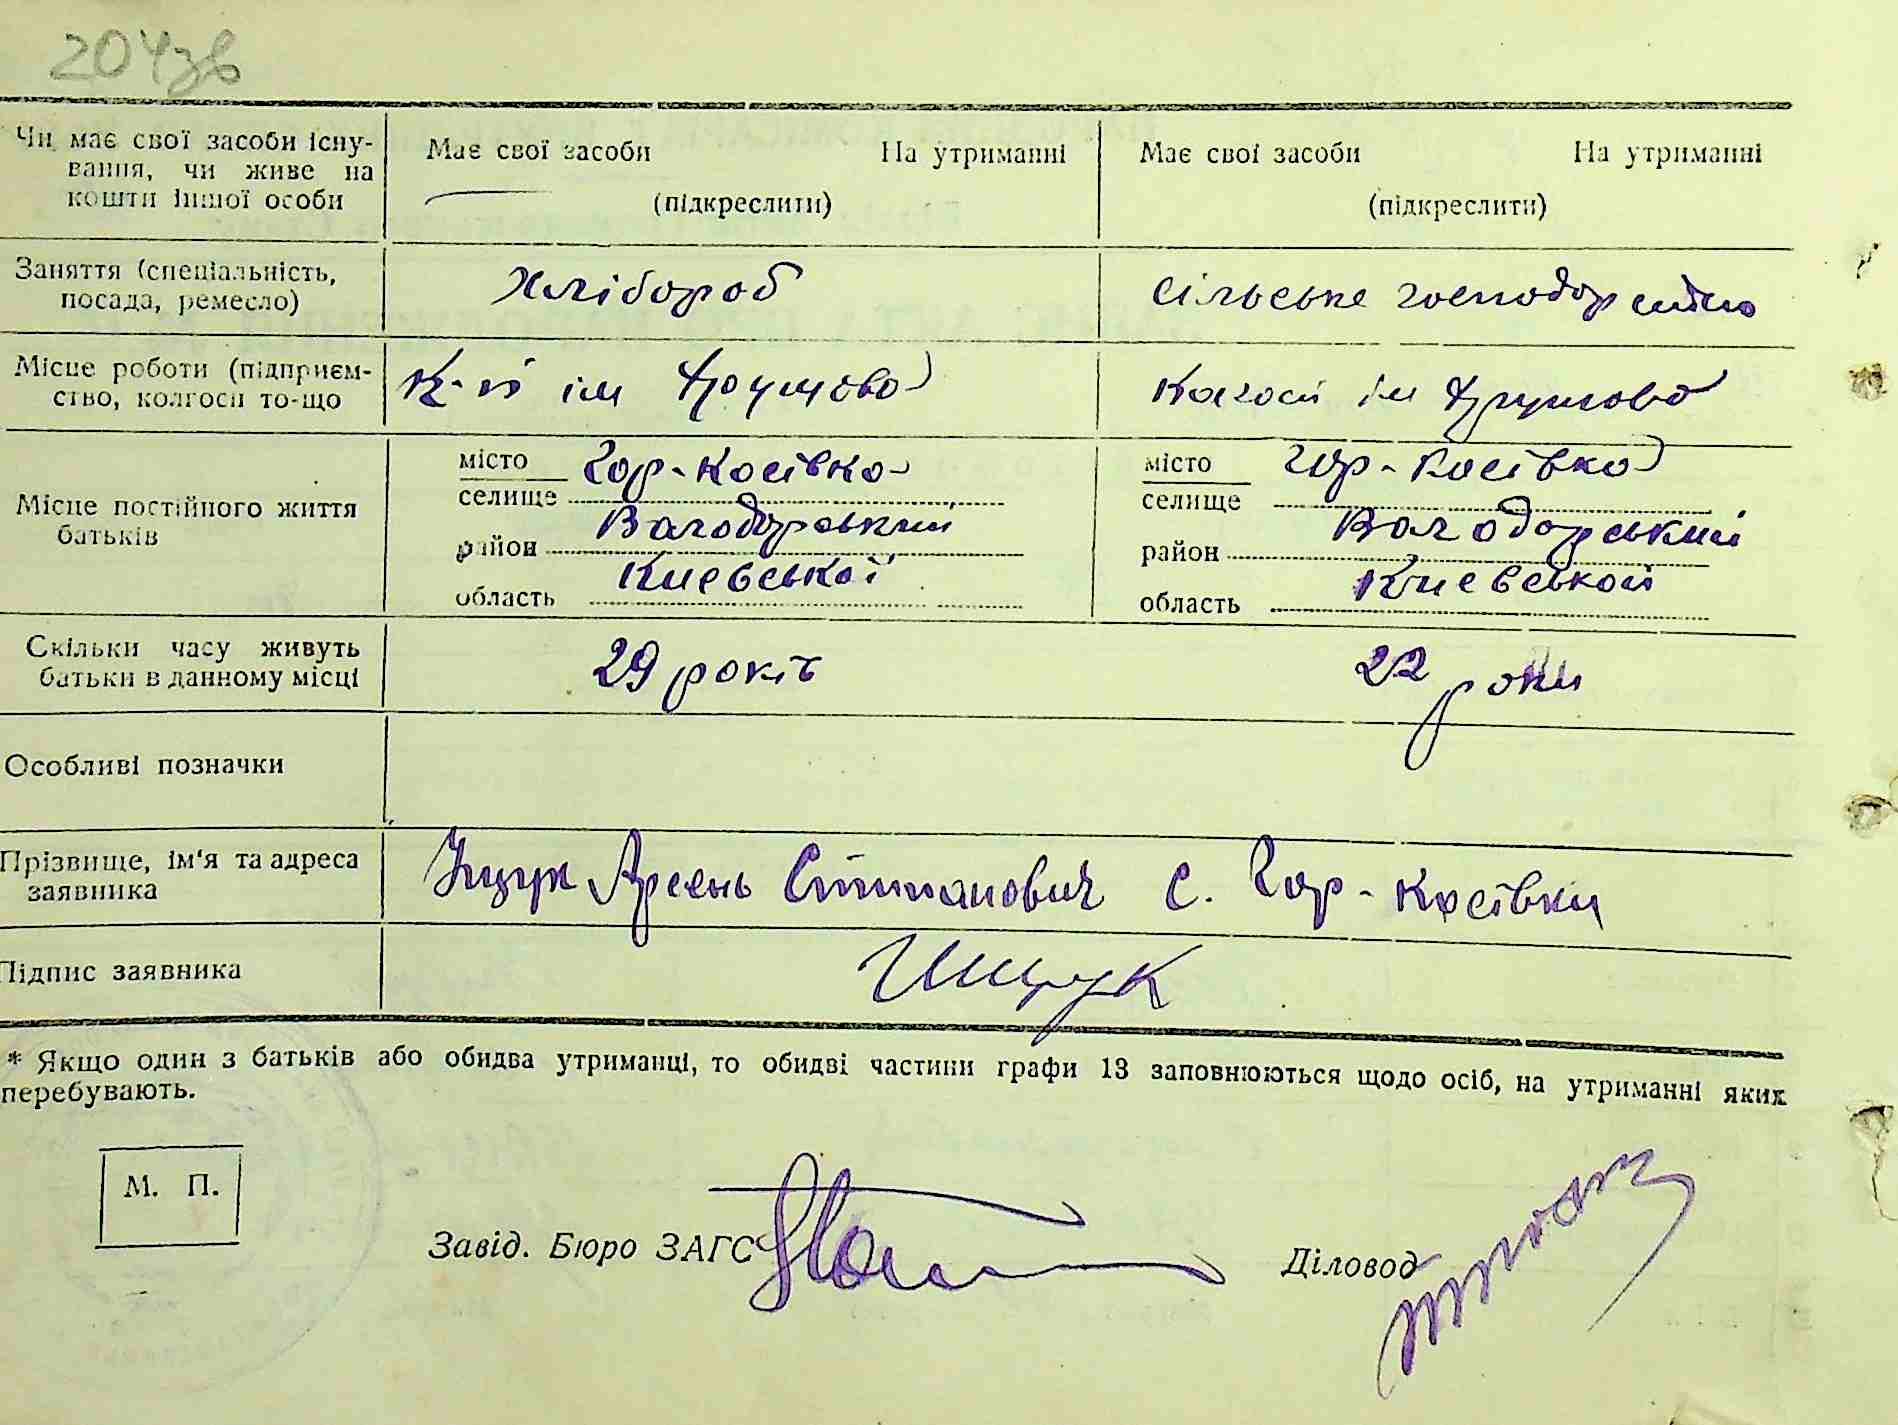 204зв
Чи має свої засоби існу-
вання, чи живе на
кошти іншої особи
Має свої засоби На утриманні
(підкреслити)
Має свої засоби На утриманні
(підкреслити)
Заняття (спеціальність,
посада, ремесло)
Хлібороб
сільське господарство
Місце роботи (підприєм-
ство, колгосп то-що
К-п ім Хрущова
Колгосп ім Хрущова
Місце постійного життя
батьків
місто
селище
Гор-Косівка
район Володарський
область Киевської
місто
селище
Гор-Косівка
район Володарський
область Киевської
Скільки часу живуть
батьки в данному місці
29 років
22 роки
Особливі позначки
Прізвище, ім'я та адреса
заявника
Іщук Арсень Степанович с. Гор-Косівки
Підпис заявника
Ищук
* Якщо один з батьків або обидва утриманці, то обидві частини графи 13 заповнюються щодо осіб, на утриманні яких
перебувають.
М. П.
Завід. Бюро ЗАГС
Діловод